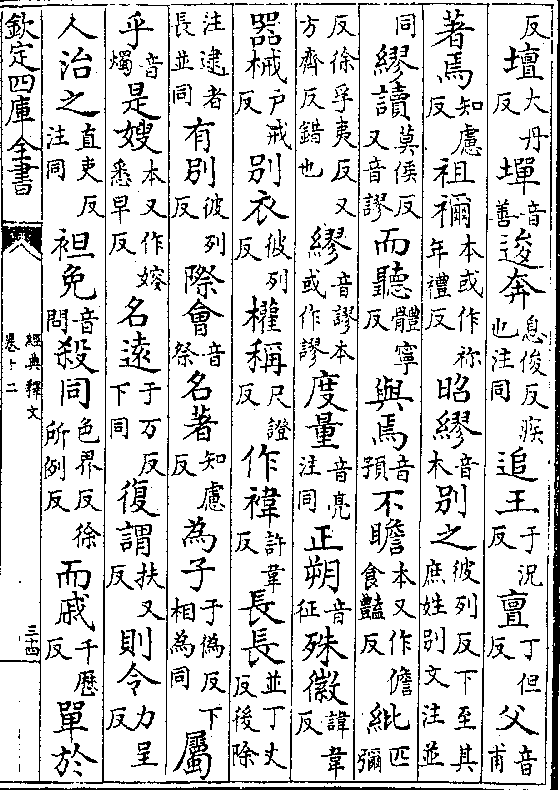 反壇大丹反墠音善逡奔息俊反疾也注同追王于況反亶丁但反父音甫
著焉知慮反祖禰本或作祢年禮反昭繆音木別之彼列反下至其庶姓別文注並
同繆讀莫侯反又音謬而聽體寧反與焉音預不贍本又作儋食豔反紕匹彌
反徐孚夷反又方齊反錯也繆音謬本或作謬度量音亮注同正朔音征殊徽諱韋反
器械戶戒反別衣彼列反權稱尺證反作褘許韋反長長並丁丈反後除
注逮者長並同有別彼列反際會音祭名著知慮反為子于偽反下相為同屬
乎音燭是嫂本又作嫆悉早反名遠于万反下同復謂扶又反則令力呈反
人治之直吏反注同袒免音問殺同色界反徐所例反而戚千歷反單於
欽定四庫全書
經典釋文
卷十二
三十四